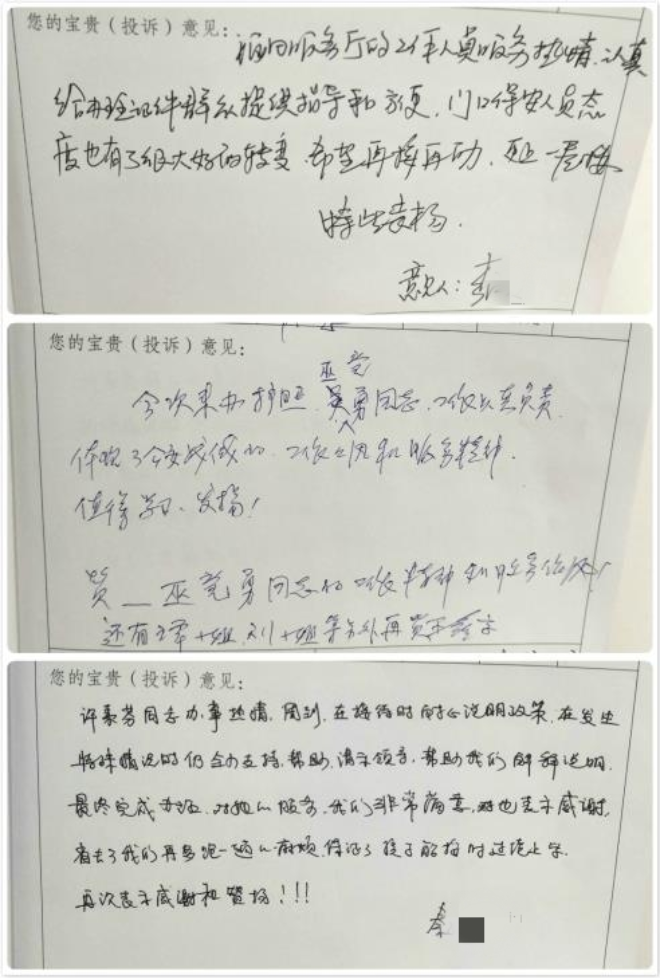 您的宝贵（投诉）意见：
福田服务厅的工作人员服务热情、认真
给办理证件群众提供指导和方便，门口保安人员态
度也有了很大好的转变，希望再接再功，更上一层楼
特此表扬.
意见人：李
您的宝贵（投诉）意见：
巫竞
今次来办护照，吴勇同志，工作认真负责
体现了公安战线的，工作作风和服务精神.
值得学习、发扬！
赞__巫竞勇同志的工作精神和服务作风！
还有 小姐、刘小姐等 再 表示
您的宝贵（投诉）意见：
许慕芳同志办事热情，周到，在接待时耐心说明政策，在发生
特殊情况时仍全力支持，帮助，请示领导，帮助我们解释说明，
最终完成办证，对她的服务，我们非常满意，对此表示感谢，
省去了我们再多跑一趟的麻烦，保证了孩子能按时过境上学.
再次表示感谢和赞扬！！！
秦